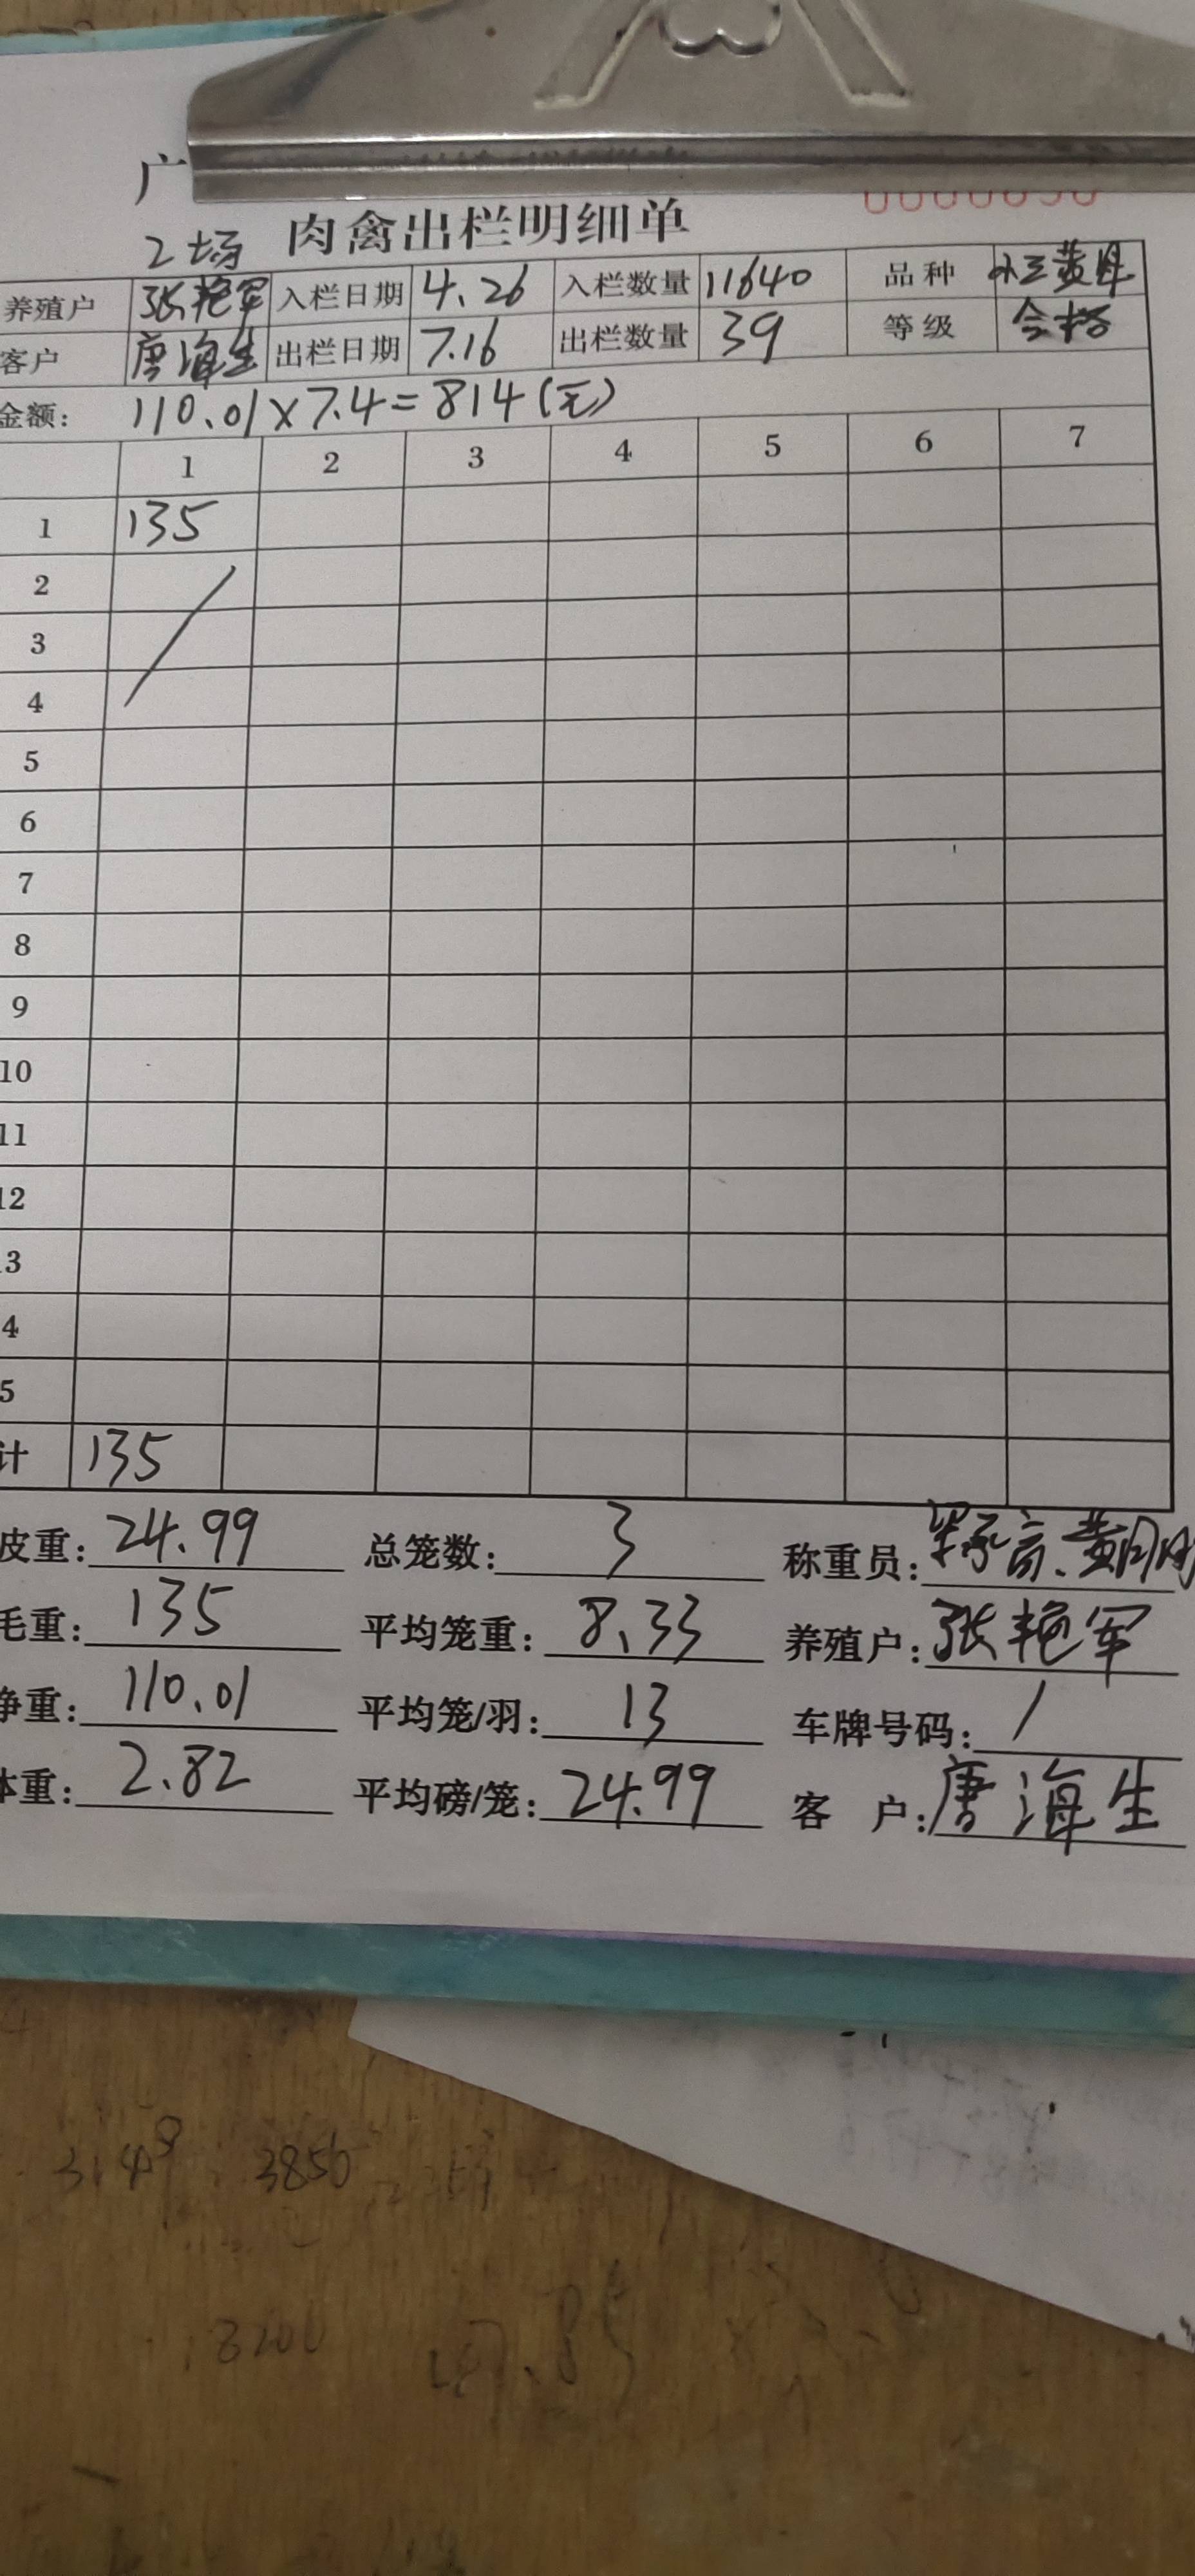 广
肉禽出栏明细单
2场
养殖户 张艳军 入栏日期 4.26 入栏数量 11640 品种
客户 唐海生 出栏日期 7.16 出栏数量 39 等级 合格
金额: 110.01×7.4=814(元)
1 2 3 4 5 6 7
1 135
2
3
4
5
6
7
8
9
10
11
12
3
4
5
计 135
皮重: 24.99 总笼数: 3 称重员:
毛重: 135 平均笼重: 8.33 养殖户: 张艳军
净重: 110.01 平均笼/羽: 13 车牌号码: /
体重: 2.82 平均磅/笼: 24.99 客户: 唐海生
3850